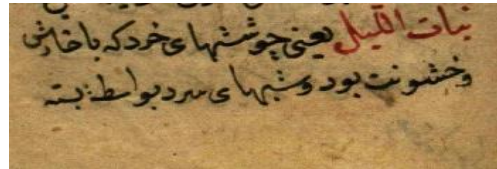 نبات اللیل یعنی جوششهای خرد که با خارش
و خشونت بود و شبهای سرد بواسطه بسته